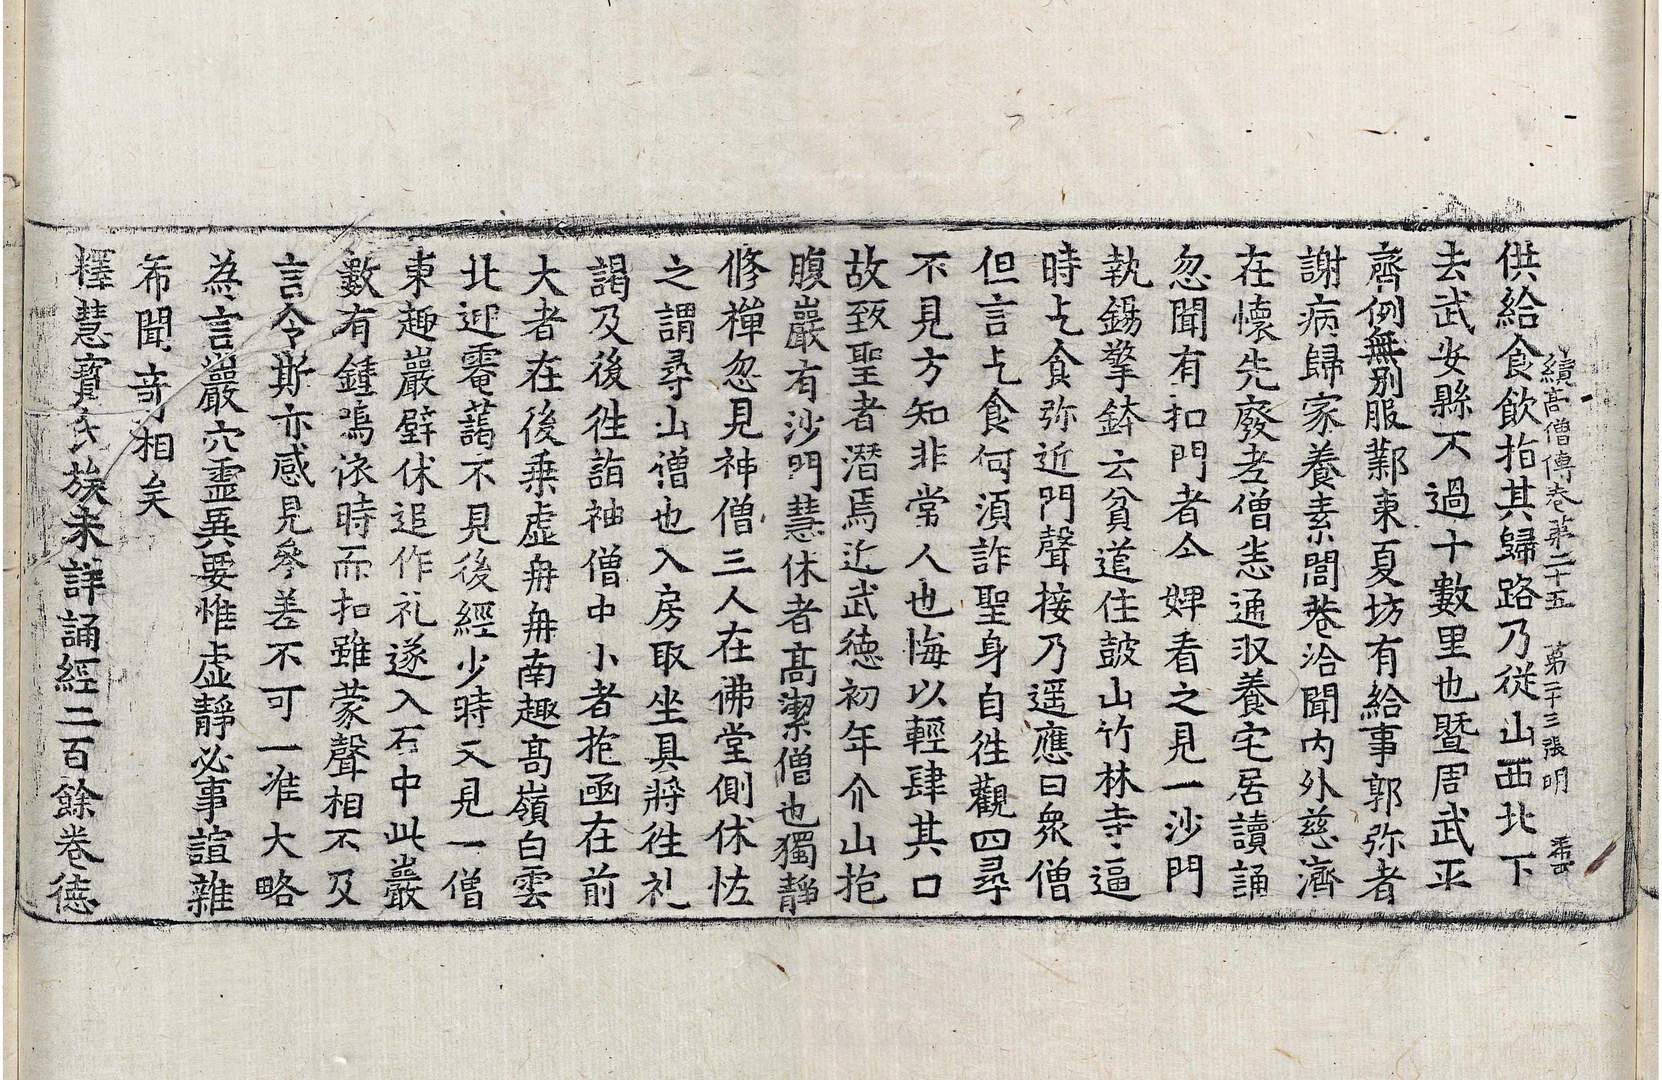 續高僧傳卷第二十五 第二十三張 明
供給食飲指其歸路乃從山西北下
去武安縣不過十數里也暨周武平
齊例無別服鄴東夏坊有給事郭弥者
謝病歸家養素閭巷洽聞内外慈濟
在懷先廢老僧悉通収養宅居讀誦
忽聞有扣門者令婢看之見一沙門
執錫擎鉢云貧道住皷山竹林寺逼
時乞食弥近門聲接乃遥應曰衆僧
但言乞食何湏詐聖身自往觀四尋
不見方知非常人也悔以輕肆其口
故致聖者潜焉近武徳初年介山抱
腹巖有沙門慧休者髙潔僧也獨靜
修禪忽見神僧三人在佛堂側休恠
之謂尋山僧也入房取坐具將往礼
謁及後往詣神僧中小者抱函在前
大者在後乗虚冉冉南趣髙嶺白雲
北迎菴藹不見後經少時又見一僧
東趣巖壁休追作礼遂入石中此巖
數有鍾鳴依時而扣雖蒙聲相不及
言令斯亦感見參差不可一准大略
為言巖穴靈異要惟虚靜必事諠雜
希聞竒相矣
釋慧寳氏族未詳誦經二百餘卷徳